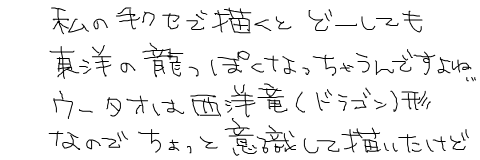 私の手クセで描くと どーしても
東洋の龍っぽくなっちゃうんですよね
ウータオは西洋竜(ドラゴン)形
なので ちょっと意識して描いたけど